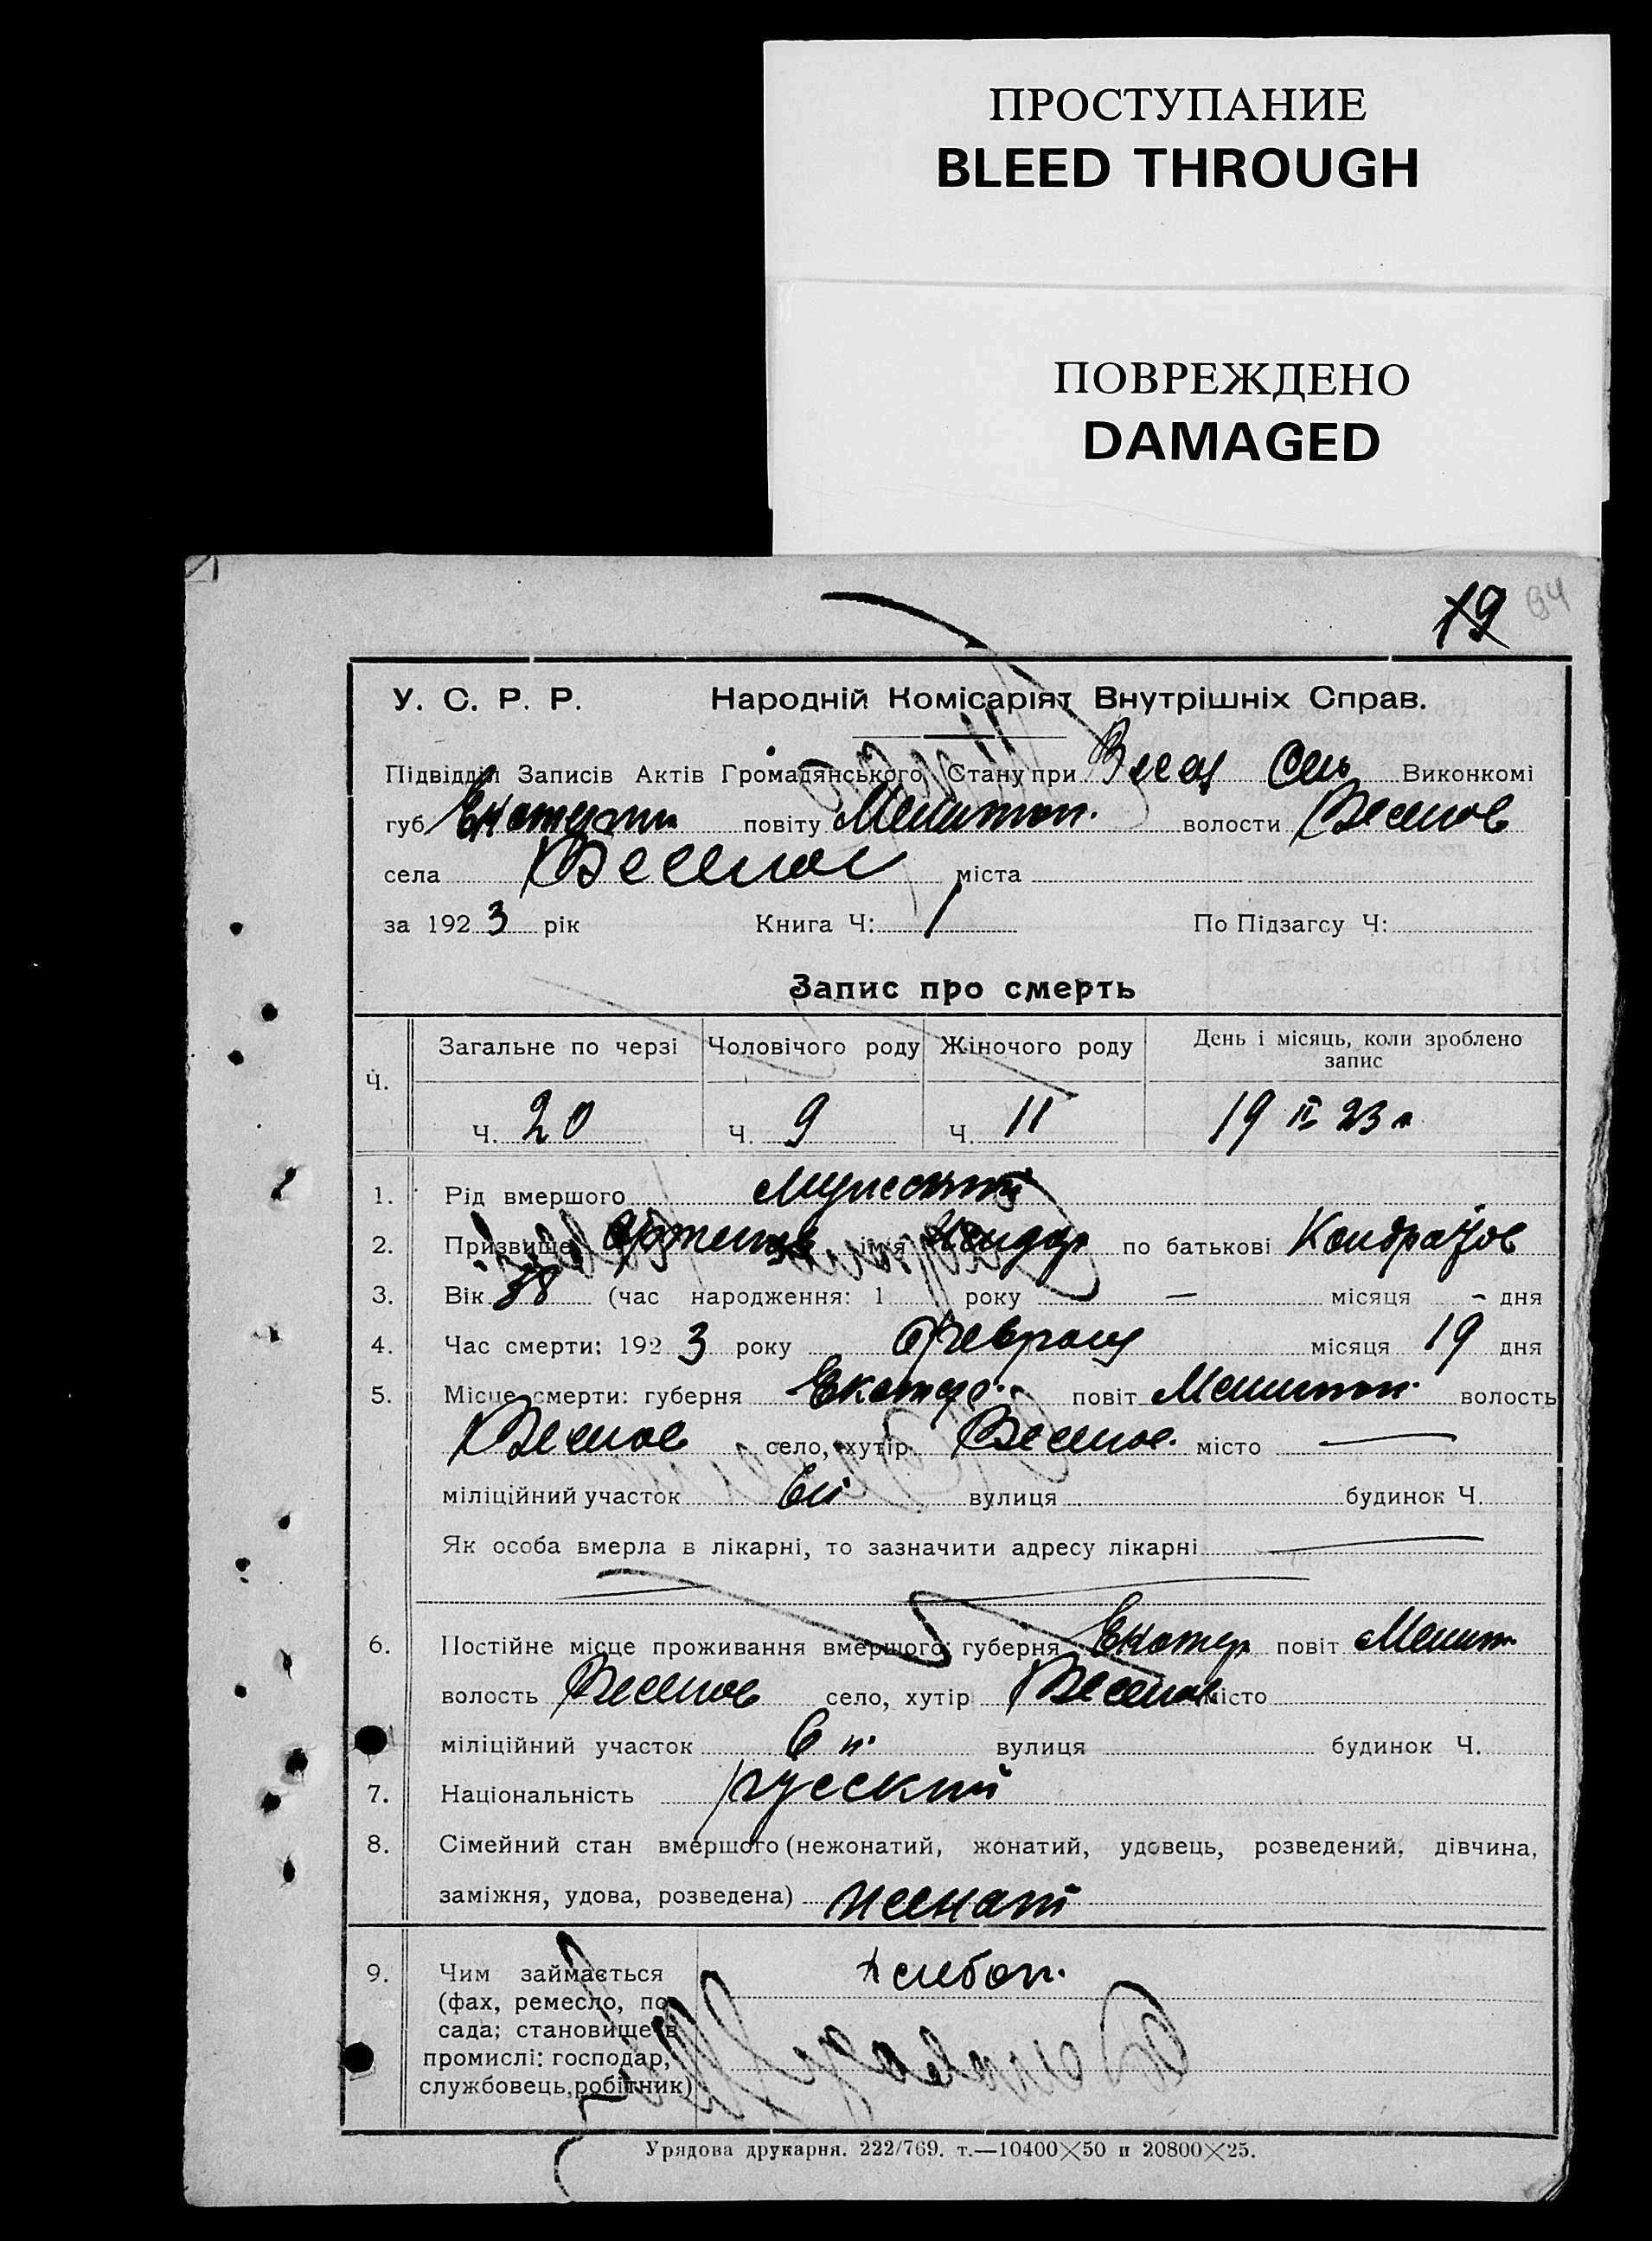 ПРОСТУПАНИЕ
BLEED THROUGH
ПОВРЕЖДЕНО
DAMAGED
19 94
У. С. Р. Р. Народній Комісаріят Внутрішніх Справ.
Підвідділ Записів Актів Громадянського Стану при Виконкомі
губ. повіту Мелитоп. волости Веселов
села Веселое міста
за 1923 рік Книга Ч: 1 По Підзагсу Ч:
Запис про смерть
Загальне по черзі Чоловічого роду Жіночого роду День і місяць, коли зроблено запис
Ч.
Ч. 20 Ч. 9 Ч. 11 19 II 23 г.
1. Рід вмершого мужской
2. Призвище ім'я по батькові
3. Вік (час народження: 1 року — місяця - дня
4. Час смерти: 1923 року Февраля місяця 19 дня
5. Місце смерти: губерня Екатер. повіт Мелитоп. волость
Веселов село, хутір Веселое місто —
міліційний участок вулиця будинок Ч.
Як особа вмерла в лікарні, то зазначити адресу лікарні —
6. Постійне місце проживання вмершого: губерня Екатер повіт Мелит
волость Веселов село, хутір Веселое місто
міліційний участок вулиця будинок Ч.
7. Національність русский
8. Сімейний стан вмершого (нежонатий, жонатий, удовець, розведений, дівчина,
заміжня, удова, розведена)
9. Чим займається хлебоп.
(фах, ремесло, по-
сада; становище в
промислі: господар,
службовець, робітник)
Урядова друкарня. 222/769. т.—10400×50 и 20800×25.